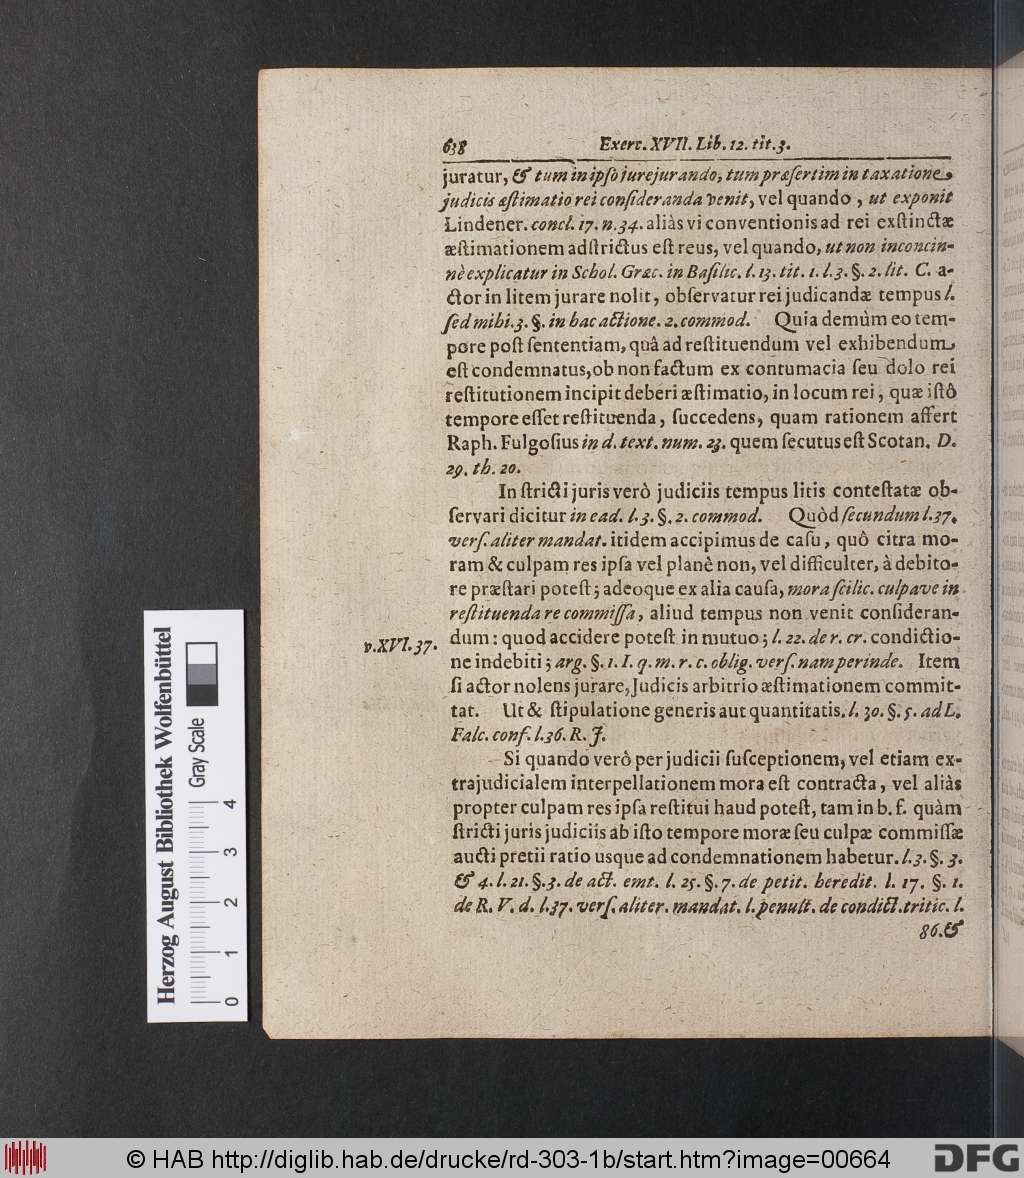 638 Exerc. XVII. Lib. 12. tit. 3.
juratur, & tum in ipſo jurejurando, tum præſertim in taxatione
judicis æſtimatio rei conſideranda venit, vel quando, ut exponit
Lindener. concl. 17. n. 34. aliàs vi conventionis ad rei exſtinctæ
æſtimationem adſtrictus eſt reus, vel quando, ut non inconcin-
nè explicatur in Schol. Græc. in Baſilic. l. 13. tit. 1. l. 3. §. 2. lit. C. a-
ctor in litem jurare nolit, obſervatur rei judicandæ tempus l.
ſed mihi. 3. §. in hac actione. 2. commod. Quia demùm eo tem-
pore poſt ſententiam, quâ ad reſtituendum vel exhibendum
eſt condemnatus, ob non factum ex contumacia ſeu dolo rei
reſtitutionem incipit deberi æſtimatio, in locum rei, quæ iſtô
tempore eſſet reſtituenda, ſuccedens, quam rationem affert
Raph. Fulgoſius in d. text. num. 23. quem ſecutus eſt Scotan. D.
29. th. 20.
In ſtricti juris verò judiciis tempus litis conteſtatæ ob-
ſervari dicitur in ead. l. 3. §. 2. commod. Quòd ſecundum l. 37.
verſ. aliter mandat. itidem accipimus de caſu, quô citra mo-
ram & culpam res ipſa vel planè non, vel difficulter, à debito-
re præſtari poteſt; adeoque ex alia cauſa, mora ſcilic. culpave in
reſtituenda re commiſſa, aliud tempus non venit conſideran-
v. XVI. 37. dum: quod accidere poteſt in mutuo; l. 22. de r. cr. condictio-
ne indebiti; arg. §. 1. I. q. m. r. c. oblig. verſ. nam perinde. Item
ſi actor nolens jurare, Judicis arbitrio æſtimationem commit-
tat. Ut & ſtipulatione generis aut quantitatis. l. 30. §. 5. ad L.
Falc. conf. l. 36. R. J.
Si quando verò per judicii ſuſceptionem, vel etiam ex-
trajudicialem interpellationem mora eſt contracta, vel aliàs
propter culpam res ipſa reſtitui haud poteſt, tam in b. f. quàm
ſtricti juris judiciis ab iſto tempore moræ ſeu culpæ commiſſæ
aucti pretii ratio usque ad condemnationem habetur. l. 3. §. 3.
& 4. l. 21. §. 3. de act. emt. l. 25. §. 7. de petit. heredit. l. 17. §. 1.
de R. V. d. l. 37. verſ. aliter. mandat. l. penult. de condict. tritic. l.
86. &
Herzog August Bibliothek Wolfenbüttel
Gray Scale
0 1 2 3 4
© HAB http://diglib.hab.de/drucke/rd-303-1b/start.htm?image=00664
DFG